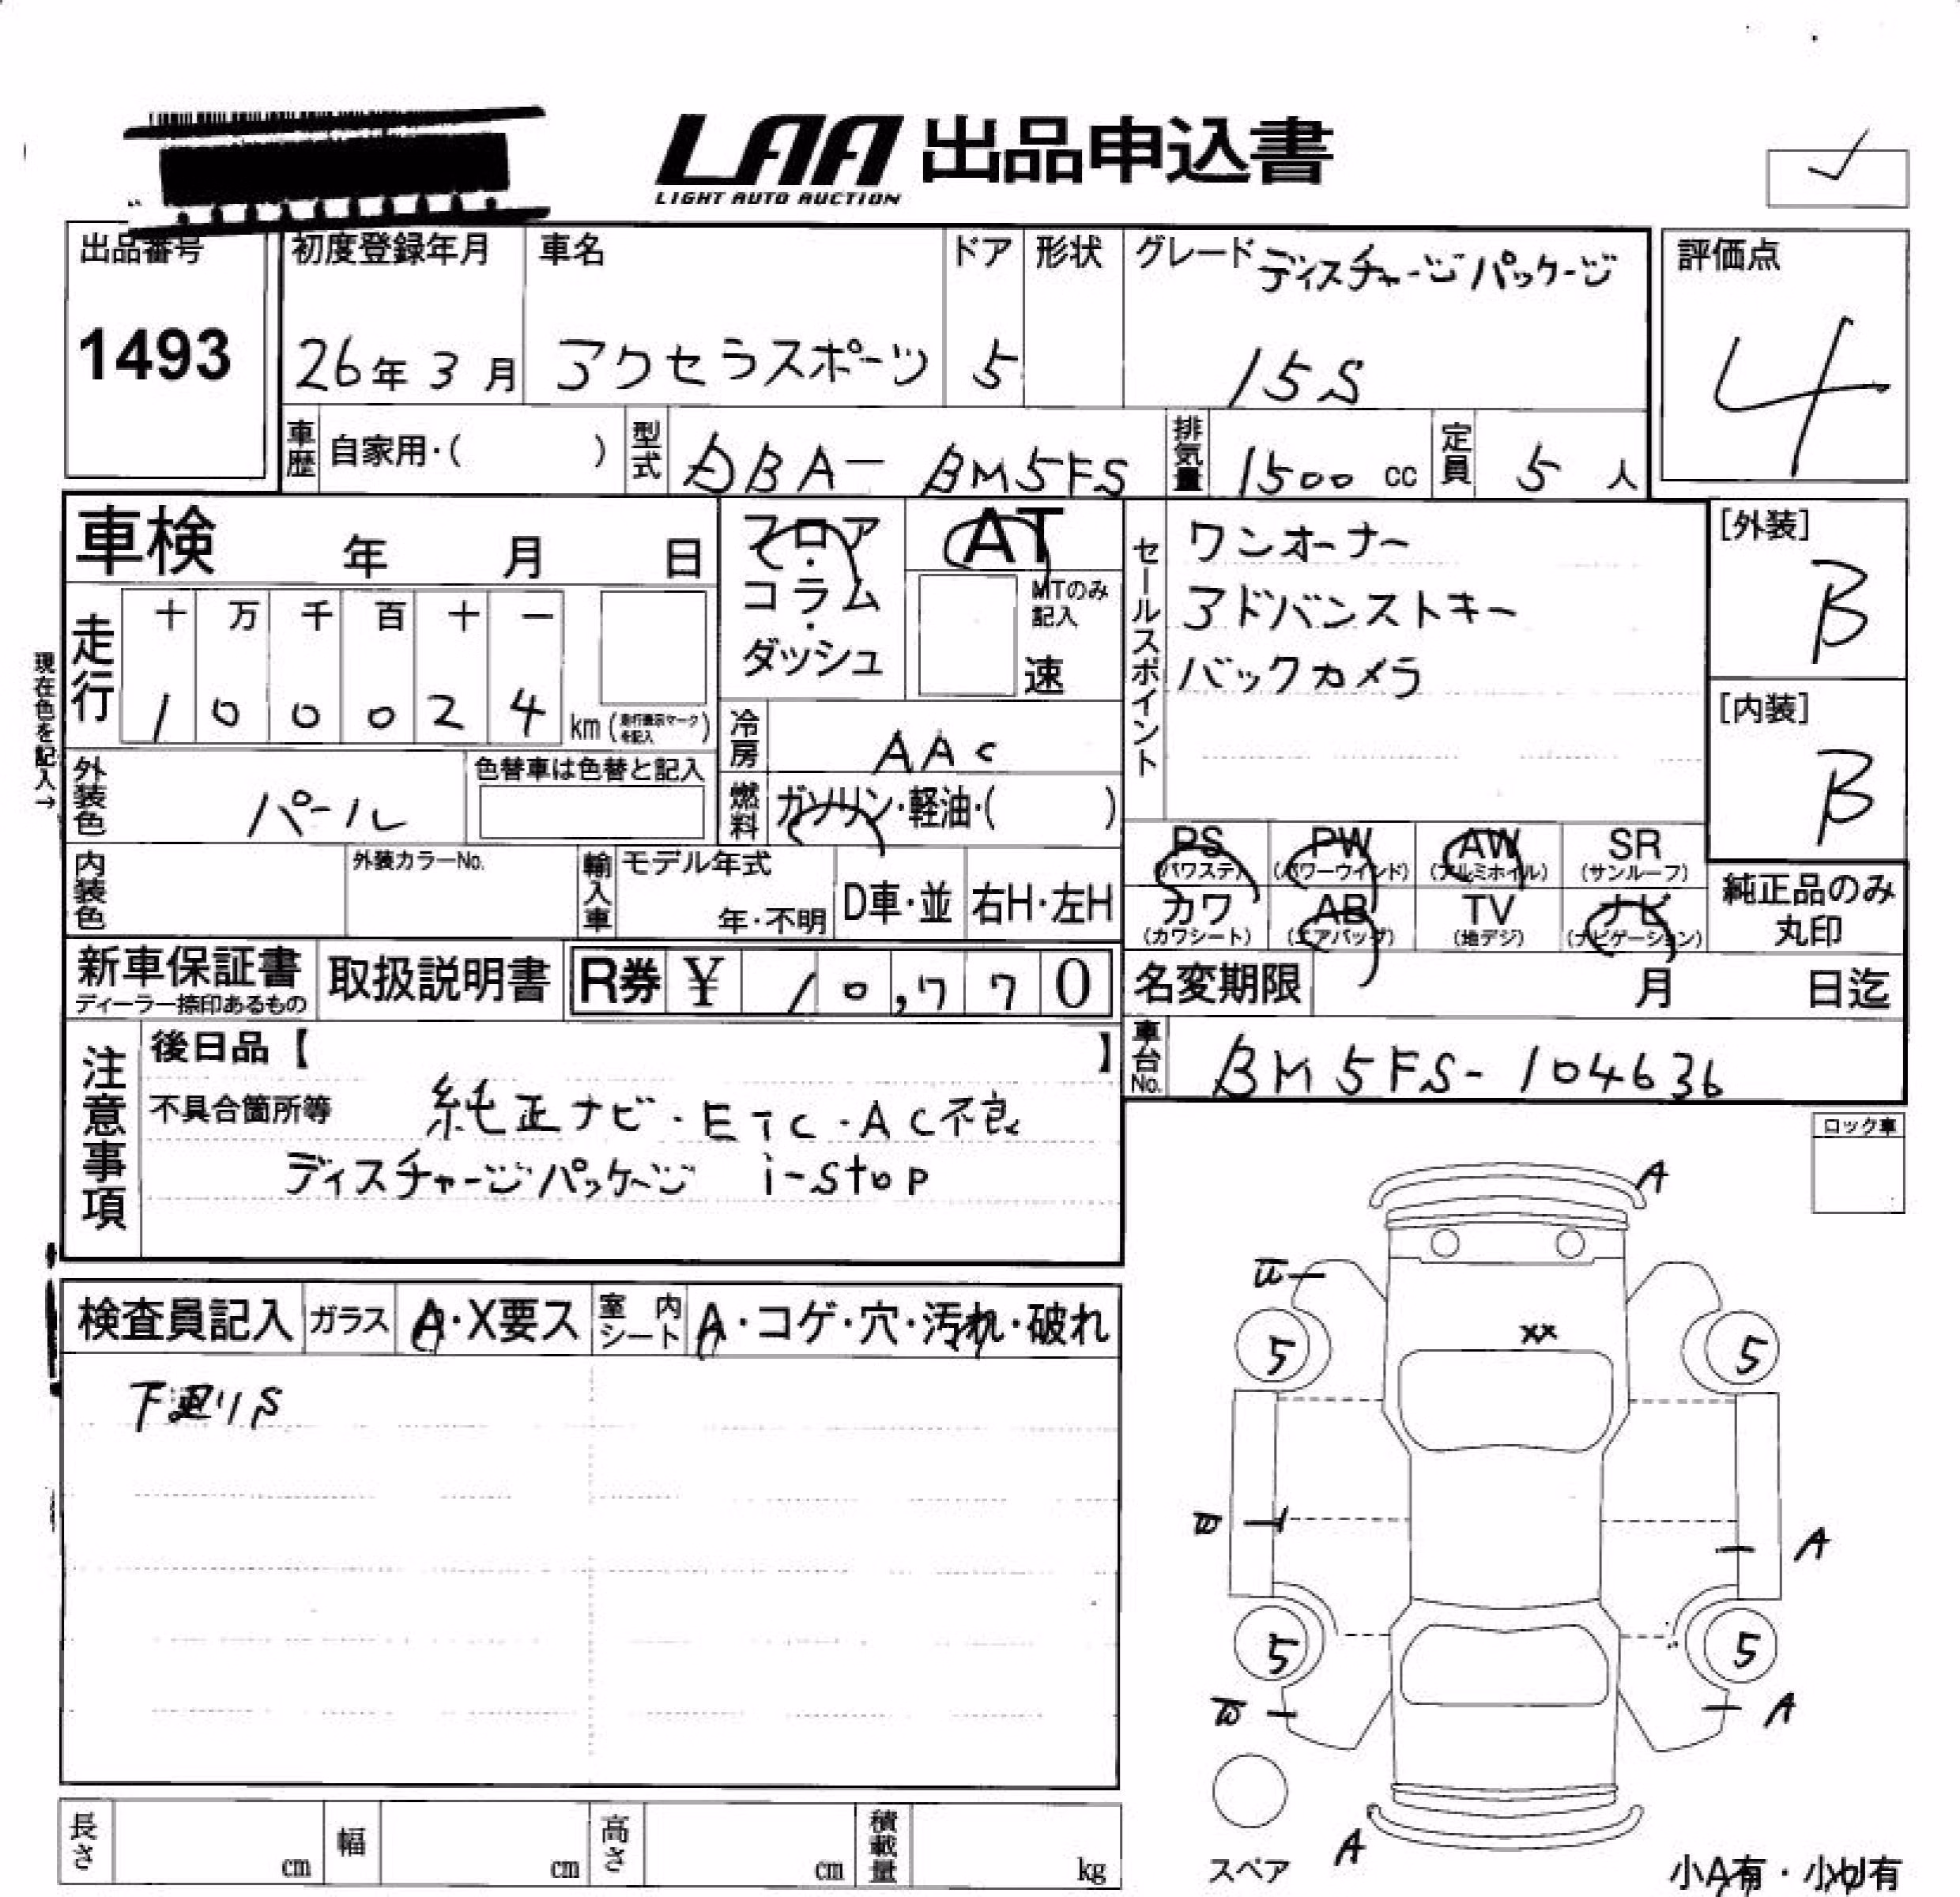 LAA 出品申込書
LIGHT AUTO AUCTION
出品番号 初度登録年月 車名 ドア 形状 グレード ディスチャージパッケージ 評価点
1493 26年3月 アクセラスポーツ 5 15S 4
車歴 自家用・( ) 型式 DBA-BM5FS 排気量 1500 cc 定員 5 人
車検 年 月 日 フロア・コラム・ダッシュ AT
MTのみ記入 速
セールスポイント
ワンオーナー
アドバンストキー
バックカメラ
[外装] B
[内装] B
現在色を記入→
走行 十 万 千 百 十 一
1 0 0 0 2 4 km (走行表示マークを記入)
冷房 AAC
外装色 パール 色替車は色替と記入 燃料 ガソリン・軽油・( )
PS (パワステ) PW (パワーウインド) AW (アルミホイル) SR (サンルーフ)
カワ (カワシート) AB (エアバッグ) TV (地デジ) ナビ (ナビゲーション)
純正品のみ丸印
内装色 外装カラーNo. 輸入車 モデル年式 年・不明 D車・並 右H・左H
新車保証書 ディーラー捺印あるもの 取扱説明書 R券 ¥ 10,770 名変期限 月 日迄
車台No. BM5FS-104636
注意事項 後日品【 】
不具合箇所等 純正ナビ・ETC・AC不良
ディスチャージパッケージ i-stop
ロック車
検査員記入 ガラス A・X要ス 室内シート A・コゲ・穴・汚れ・破れ
下廻りS
A
XX
5 5
A
5 5
A
スペア A
小A有・小U有
長さ cm 幅 cm 高さ cm 積載量 kg